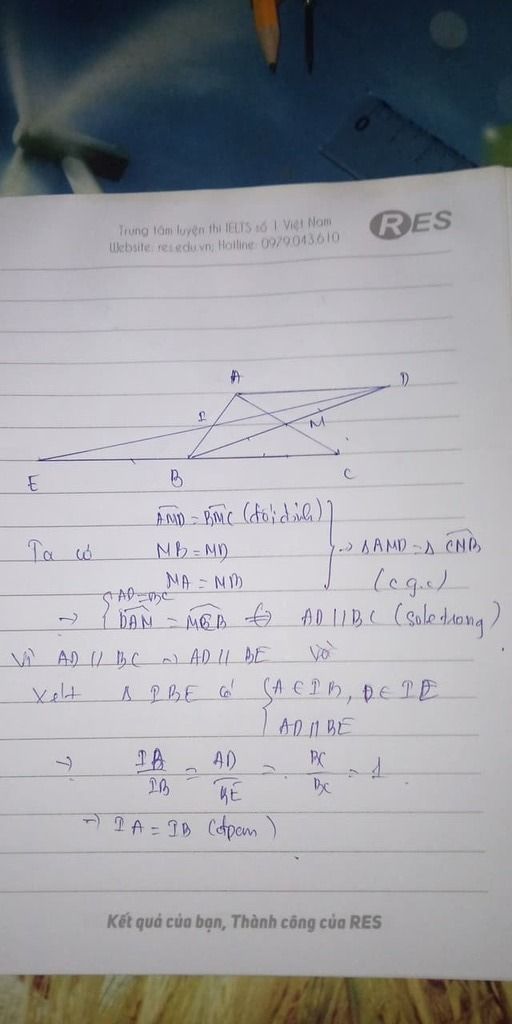 Trung tâm luyện thi IELTS số 1 Việt Nam
Website: res.edu.vn; Hotline: 0979.043.610
RES
A
D
I
M
E
B
C
AMD = BMC (đối đỉnh)
Ta có MB = MD → Δ AMD = Δ CMB
MA = MB (c g.c)
→ { AD = BC
DAM = MCB ⇔ AD // BC (sole trong)
Vì AD // BC → AD // BE Và
Xét Δ IBE có { A ∈ IB, D ∈ IE
AD // BE
→ IA/IB = AD/BE = BC/BC = 1
→ IA = IB (đpcm)
Kết quả của bạn, Thành công của RES